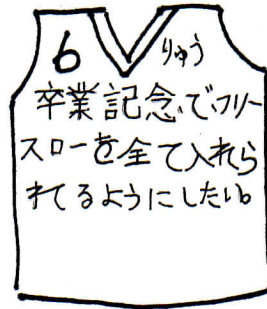 6 りゅう
卒業記念でフリー
スローを全て入れら
れてるようにしたい。